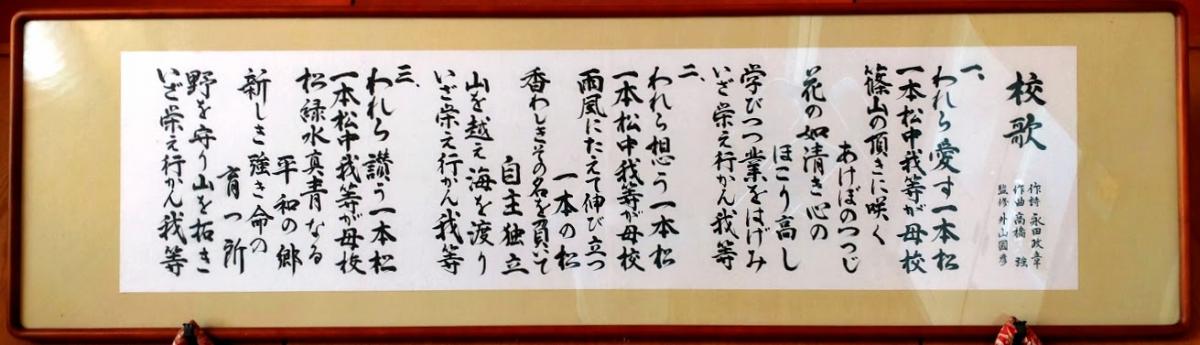 校歌
作詩 永田政章
作曲 高橋 強
監修 外山國彦
一、
われら愛す一本松
一本松中我等が母校
篠山の頂きに咲く
あけぼのつつじ
花の如清き心の
ほこり高し
学びつつ業をはげみ
いざ栄え行かん我等
二、
われら想う一本松
一本松中我等が母校
雨風にたえて伸び立つ
一本の松
香わしきその名を負いて
自主独立
山を越え海を渡り
いざ栄え行かん我等
三、
われら讃う一本松
一本松中我等が母校
松緑水真青なる
平和の郷
新しき強き命の
育つ所
野を守り山を拓き
いざ栄え行かん我等